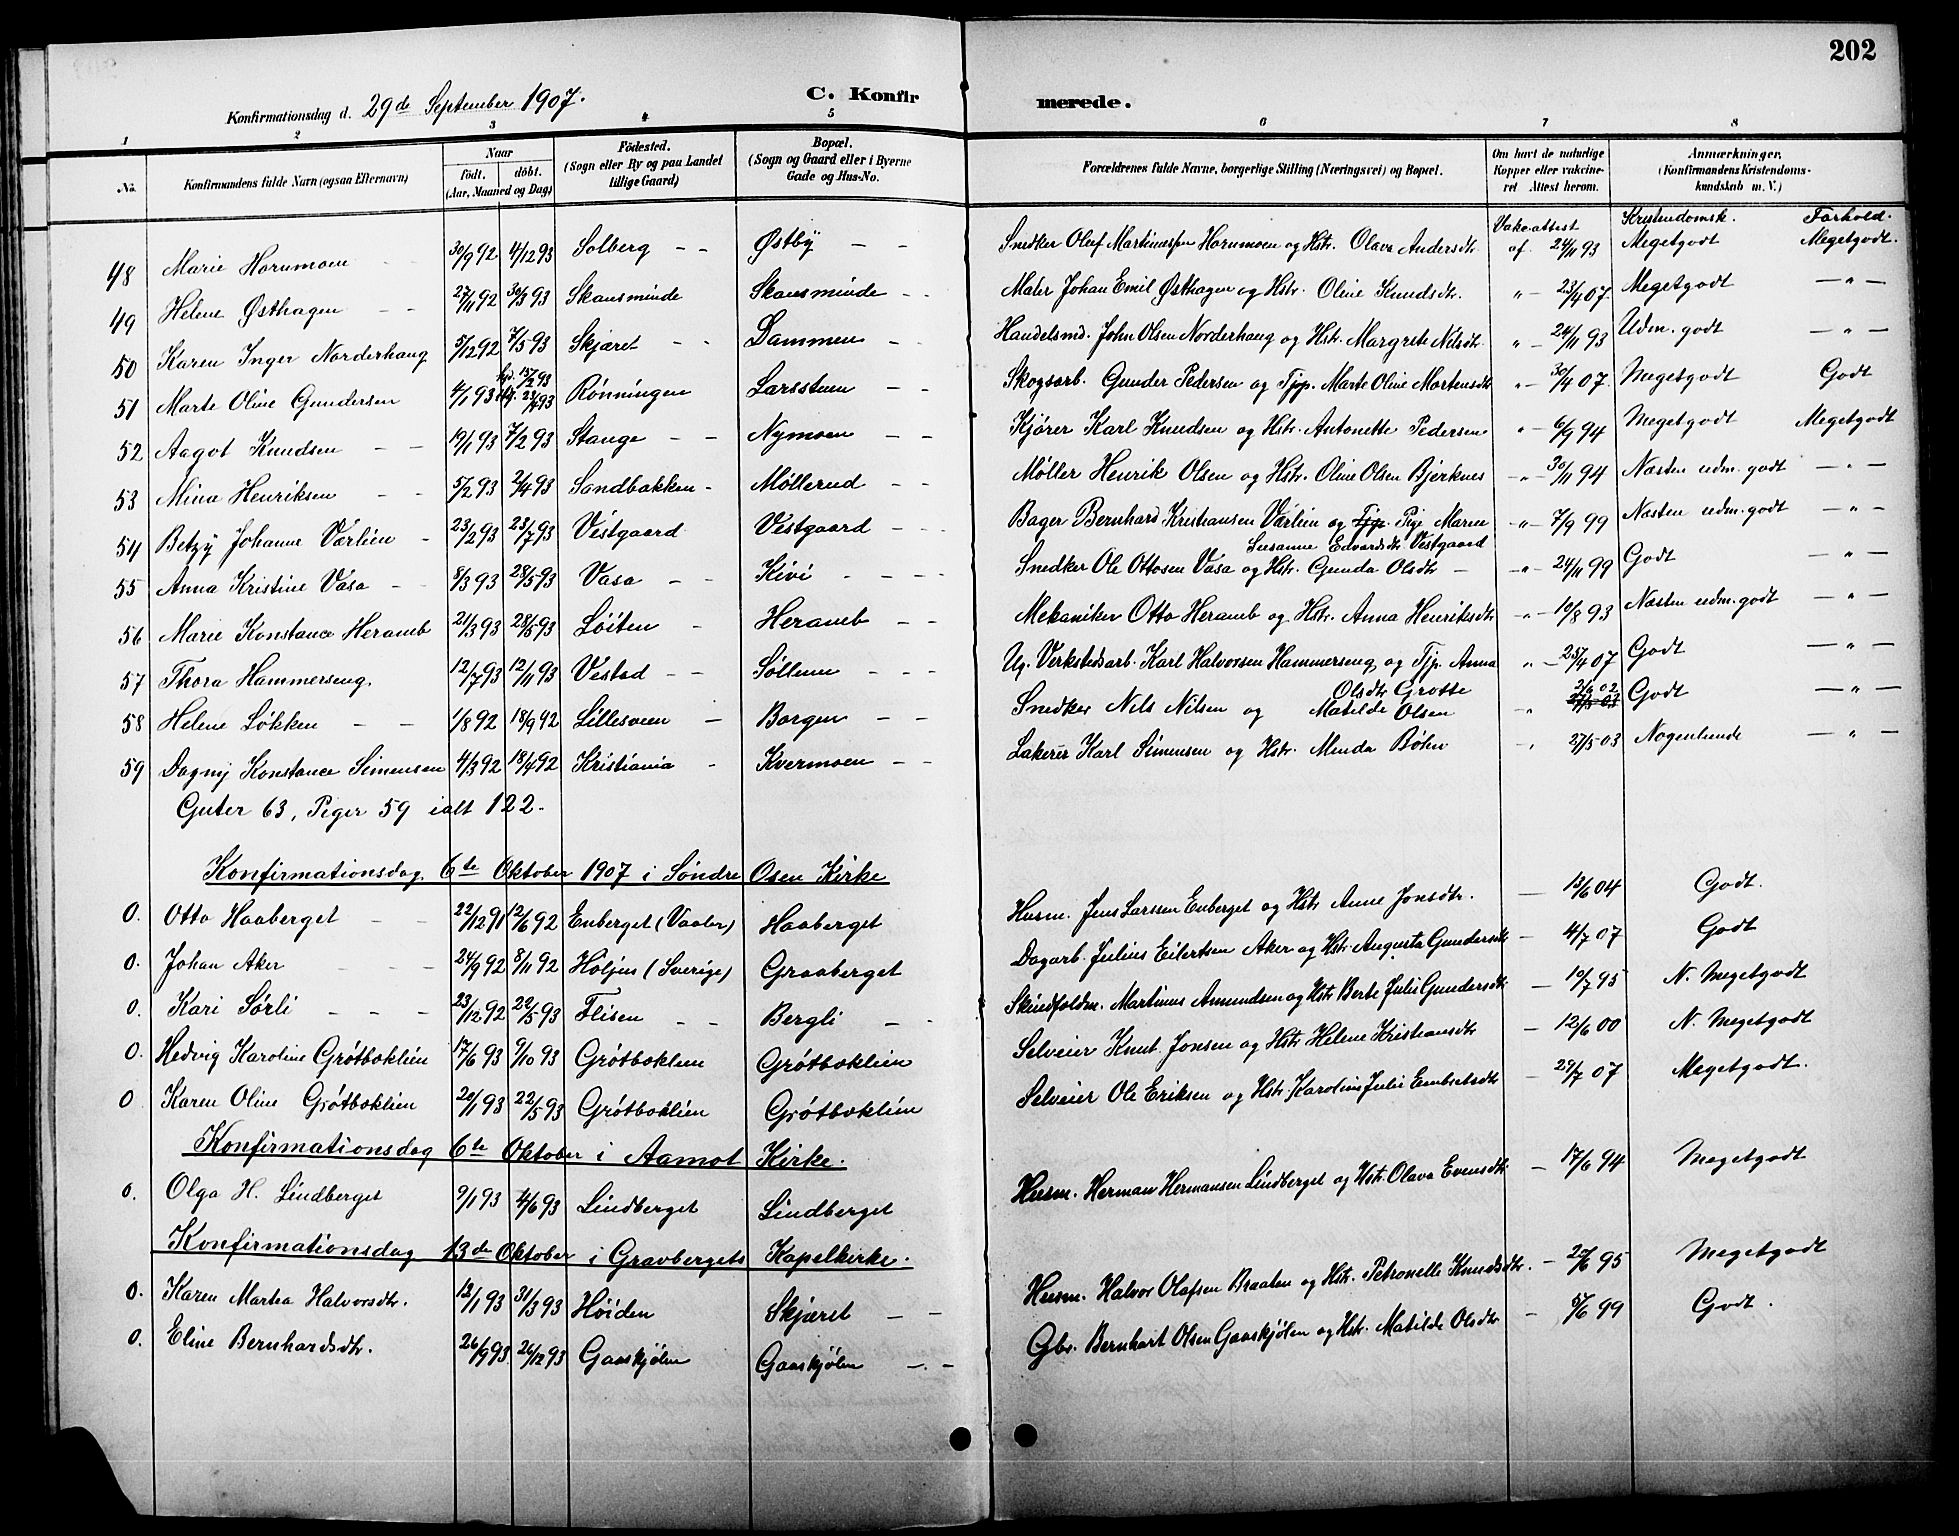 202
Konfirmationsdag d. 29de September 1907. C. Konfir merede.
1 2 3 4 5 6 7 8
No. Konfirmandens fulde Navn (ogsaa Efternavn) Naar født. døbt. (Aar, Maaned og Dag) Födested. (Sogn eller By og paa Landet tillige Gaard) Bopæl. (Sogn og Gaard eller i Byerne Gade og Hus-No. Forældrenes fulde Navne, borgerlige Stilling (Næringsvei) og Bopæl. Om havt de naturlige Kopper eller vakcineret Attest herom. Anmærkninger. (Konfirmandens Kristendomskundskab m. V.)
Vakc.attest Kristendomsk. Forhold.
48 Marie Hornmoen 30/9 92 4/12 93 Solberg - - Østby - - Snedker Oluf Martinussen Hornmoen og Hstr. Olava Andersdtr. af 24/11 93 Megetgodt Megetgodt.
49 Helene Østhagen - - 27/11 92 30/3 93 Skansminde Skansminde - - Maler Johan Emil Østhagen og Hstr. Oline Knudsdtr. " - 23/4 07. Megetgodt - " -
50 Karen Inger Norderhaug 5/12 92 7/5 93 Skjæret - - Dammen - - Handelsmd. John Olsen Norderhaug og Hstr. Margrete Nilsdtr. " - 24/11 93 Udm. godt - " -
51 Marte Oline Gundersen 4/1 93 15/2 93 23/4 93 Rønningen Larsstuen - - Skogsarb. Gunder Pedersen og Tjp. Marte Oline Mortensdtr " - 30/4 07. Megetgodt Godt
52 Aagot Knudsen - - 19/1 93 7/2 93 Stange - - Nymoen - - Kjører Karl Knudsen og Hstr. Antonette Pedersen " - 6/9 94 Megetgodt Megetgodt
53 Mina Henriksen - - 5/2 93 2/4 93 Sandbakken - Møllerud - - Møller Henrik Olsen og Hstr. Oline Olsen Bjerknes - " - 30/11 94 Næsten udm. godt - " -
54 Betzy Johanne Værlien - 23/2 93 23/7 93 Vestgaard Vestgaard - - - Bager Bernhard Kristiansen Værlien og Tjp. Pige Maren - " - 7/9 99 Næsten udm. godt - " -
Susanne Edvardsdtr Vestgaard
55 Anna Kristine Vasa - - 8/3 93 28/5 93 Vasa - - Kivi - - - - Snedker Ole Ottosen Vasa og Hstr. Gunda Olsdtr - - " - 24/11 99 Godt - " -
56 Marie Konstance Heramb 21/3 93 28/5 93 Løiten - Heramb - - Mekaniker Otto Heramb og Hstr. Anna Henriksdtr " - 10/8 93 Næsten udm. godt - " -
57 Thora Hammerseng. 12/7 93 12/11 93 Vestad - - Søllenn - - - Ug. Verkstedsarb. Karl Halvorsen Hammerseng og Tjp. Anna " - 25/4 07 Godt - " -
Olsdtr Grotte
58 Helene Løkken - - 1/8 92 18/9 92 Lillesveen - Borgen - - Snedker Nils Nilsen og Matilde Olsen " 2/9 02 27/5 03 Godt - " -
59 Dagny Konstance Simensen 4/3 92 18/4 92 Kristiania - Kvermoen - - Lakerer Karl Simensen og Hstr. Menda Bøhn " 27/5 03 Nogenlunde - " -
Guter 63, Piger 59 ialt 122.
Konfirmationsdag 6te Oktober 1907 i Søndre Osen Kirke
0. Otto Haaberget - - 22/12 91 12/6 92 Enberget (Vaaler) Haaberget Husm. Jens Larssen Enberget og Hstr Anne Jonsdtr. - 13/6 04 Godt.
0. Johan Aker - - - 24/9 92 8/11 92 Holjus (Sverige) Graaberget Dagarb. Julius Eilertsen Aker og Hstr Augusta Gundersdtr - 4/7 07 Godt
0. Kari Sørli - - - 23/12 92 22/5 93 Flisen - - Bergli - - Skindfoldm. Martinus Amundsen og Hstr Berte Julie Gundersdtr - 10/7 95 N. Megetgodt
0. Hedvig Karoline Grøtboklien 17/6 93 9/10 93 Grøtboklien Grøtboklien Selveier Knut Jonsen og Hstr Helene Kristiansdtr - 12/6 00 N. Megetgodt
0 Karen Oline Grøtboklien 20/1 93 22/5 93 Grøtboklien Grøtboklien Selveier Ole Eriksen og Hstr Karoline Julie Embretsdtr - 29/7 07 Megetgodt.
Konfirmationsdag 6te Oktober i Aamot Kirke.
0. Olga H. Lindberget 9/1 93 4/6 93 Lindberget Lindberget Husm. Herman Hermansen Lindberget og Hstr. Olava Evensdtr. - 17/6 94 Megetgodt
Konfirmationsdag 13de Oktober i Gravbergets Kapelkirke.
0. Karen Martea Halvorsdtr. 12/1 93 31/3 93 Høiden Skjæret - - Husm. Halvor Olafsen Braaten og Hstr. Petronelle Knudsdtr. - 20/6 95 Megetgodt
0. Eline Bernhardsdtr. 26/9 93 26/12 93 Gaaskjølen Gaaskjølen - - Gbr. Bernhart Olsen Gaaskjølen og Hstr. Matilde Olsdtr - 5/6 99 Godt.